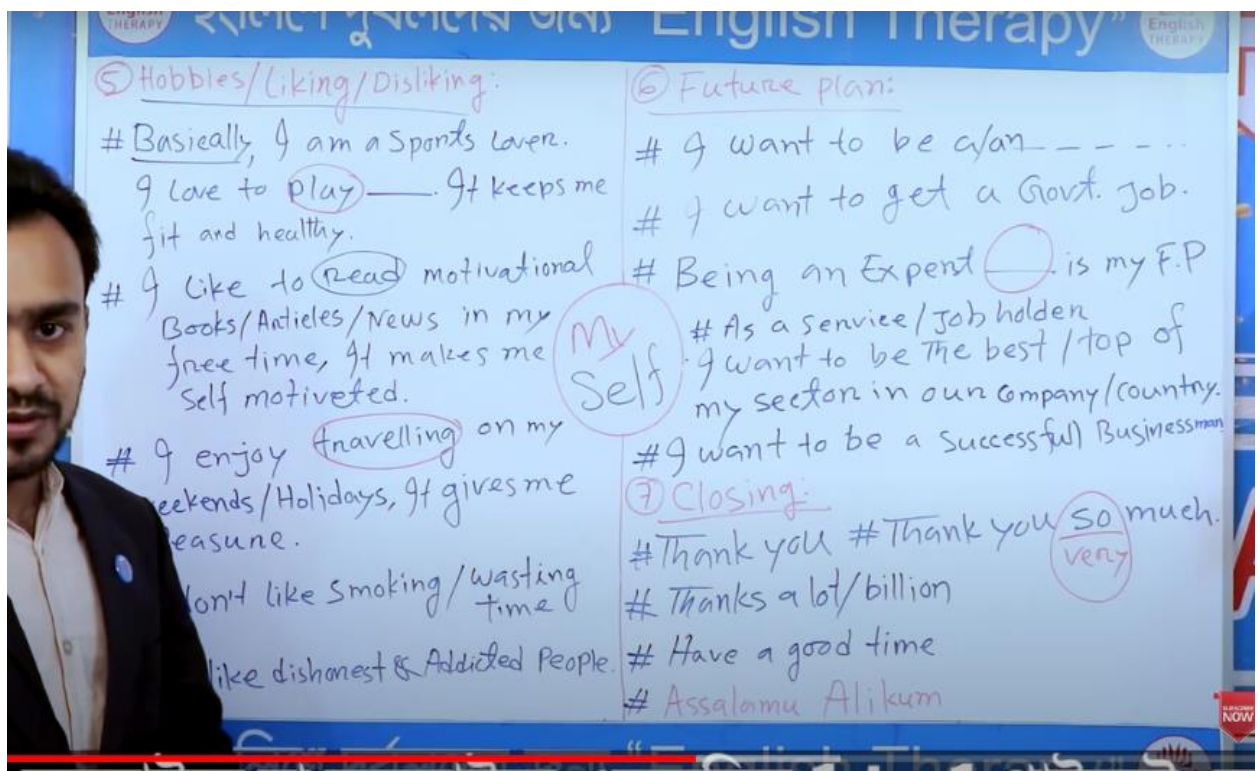 English
THERAPY
ইংলিশে দুর্বলদের জন্য "English Therapy"
English
THERAPY
⑤ Hobbies/Liking/Disliking:
# Basically, I am a Sports Lover.
I love to play ____. It keeps me
fit and healthy.
# I like to Read motivational
Books/Articles/News in my
free time, It makes me
Self motiveted.
# I enjoy travelling on my
eekends/Holidays, It gives me
easure.
on't like smoking/wasting
time
like dishonest & Addicted People.
My
Self
⑥ Future plan:
# I want to be a/an - - - - - -
# I want to get a Govt. Job.
# Being an Expert ____ is my F.P
# As a service/Job holder
I want to be The best/top of
my sector in our Company/Country.
# I want to be a Successful Businessman
⑦ Closing:
# Thank you # Thank you so much.
very
# Thanks a lot/billion
# Have a good time
# Assalamu Alikum
SUBSCRIBE
NOW
"English Therapy"